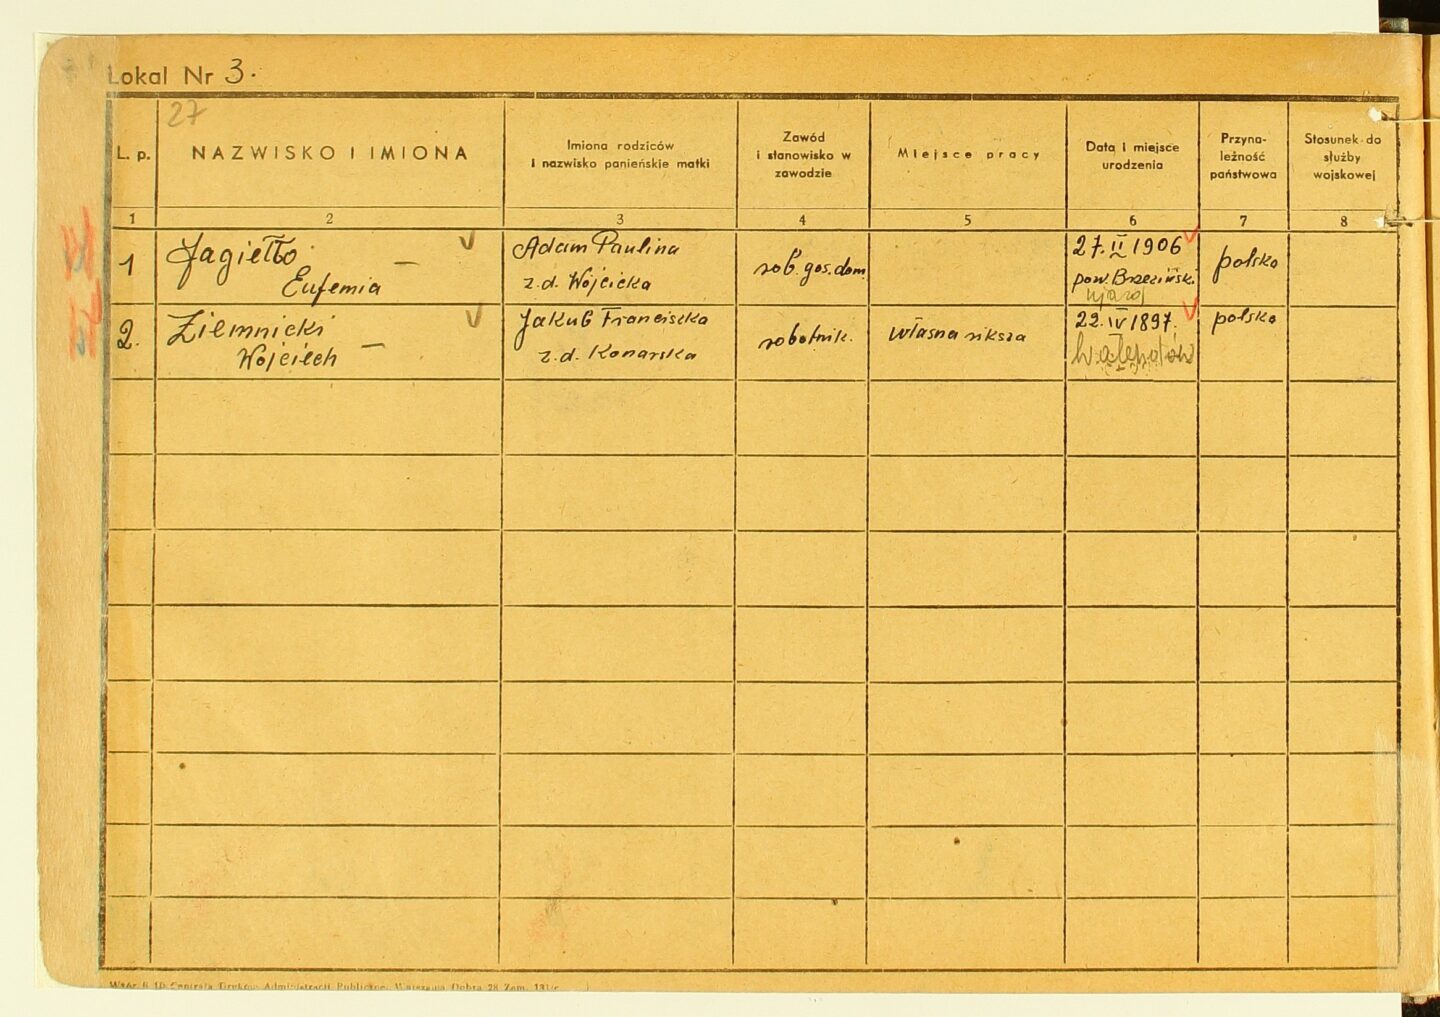 Lokal Nr 3.
27
L. p.
NAZWISKO I IMIONA
Imiona rodziców
i nazwisko panieńskie matki
Zawód
i stanowisko w
zawodzie
Miejsce pracy
Data i miejsce
urodzenia
Przyna-
leżność
państwowa
Stosunek do
służby
wojskowej
1 2 3 4 5 6 7 8
1
Jagiełło
Eufemia —
Adam Paulina
z.d. Wójcicka
rob. gos. dom.
27.II 1906
pow. Brzeziński
Ujazd
polska
2.
Ziemnicki
Wojciech —
Jakub Franciszka
z.d. Konarska
robotnik.
własna riksza
22.IV 1897.
polska
Centrala Druków Administracji Publicznej, Warszawa Dobra 28